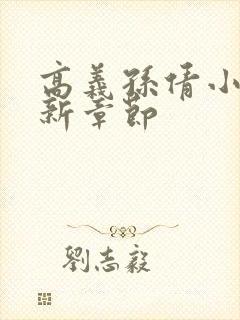 高義孫倩小
新章節
劉志毅